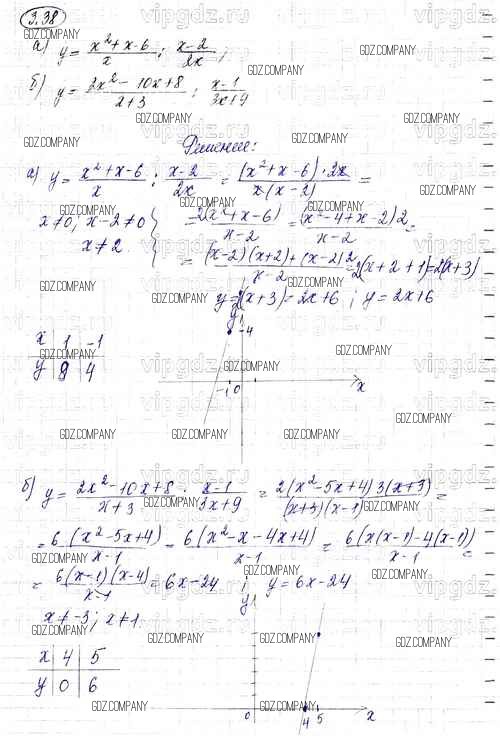 3.38
а) y = (x²+x-6)/x : (x-2)/2x ;
б) y = (2x²-10x+8)/(x+3) : (x-1)/(3x+9)
Решение:
а) y = (x²+x-6)/x : (x-2)/2x = (x²+x-6)·2x/x(x-2) =
x≠0; x-2≠0 = 2(x²+x-6)/(x-2) = (x²-4+x-2)2/(x-2) =
x≠2
= (x-2)(x+2)+(x-2)2/(x-2) = 2(x+2+1) = 2(x+3)
y = 2(x+3) = 2x+6 ; y = 2x+6
x | 1 | -1
y | 8 | 4
y
4
-1 0 x
б) y = (2x²-10x+8)/(x+3) : (x-1)/(3x+9) = 2(x²-5x+4)3(x+3)/(x+3)(x-1) =
= 6(x²-5x+4)/(x-1) = 6(x²-x-4x+4)/(x-1) = 6(x(x-1)-4(x-1))/(x-1) =
= 6(x-1)(x-4)/(x-1) = 6x-24 ; y = 6x-24
x≠-3; x≠1
x | 4 | 5
y | 0 | 6
y
0 4 5 x
vipgdz.com
GDZ.COMPANY